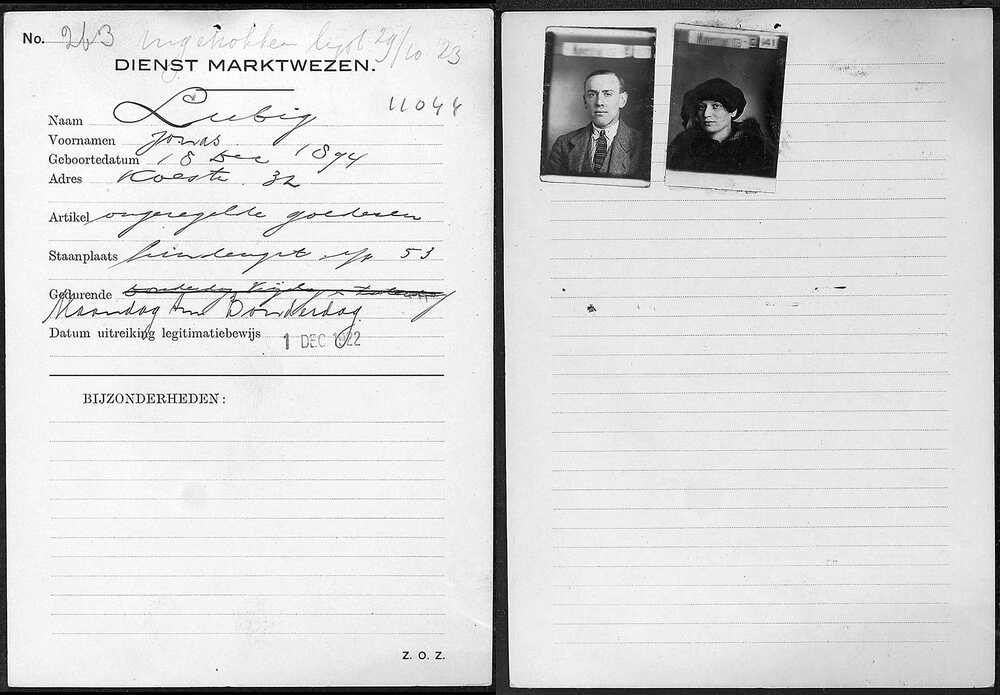 No. 263 Ingetrokken 29/10 23
DIENST MARKTWEZEN.
11044
Naam Lubig
Voornamen Jonas
Geboortedatum 18 Dec 1894
Adres 32
Artikel ongeregelde goederen
Staanplaats 53
Gedurende Donderdag Vrijdag
Maandag Donderdag
Datum uitreiking legitimatiebewijs 1 DEC 1922
BIJZONDERHEDEN:
Z. O. Z.